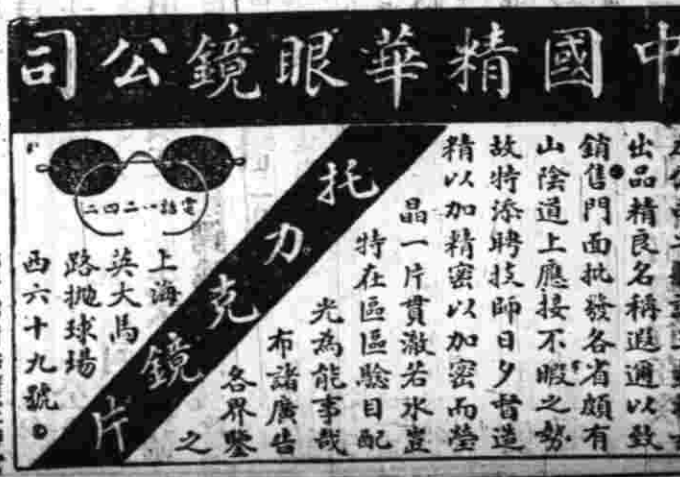 中國精華眼鏡公司
出品精良名稱遐邇以致
銷售門面批發各省頗有
山陰道上應接不暇之勢
故特添聘技師日夕督造
精以加精密以加密而瑩
晶一片貫澈若氷豈
特在區區驗目配
光為能事哉
布諸廣告
各界鑒
之
托力克鏡片
電話一二四二
上海
英大馬
路拋球場
西六十九號